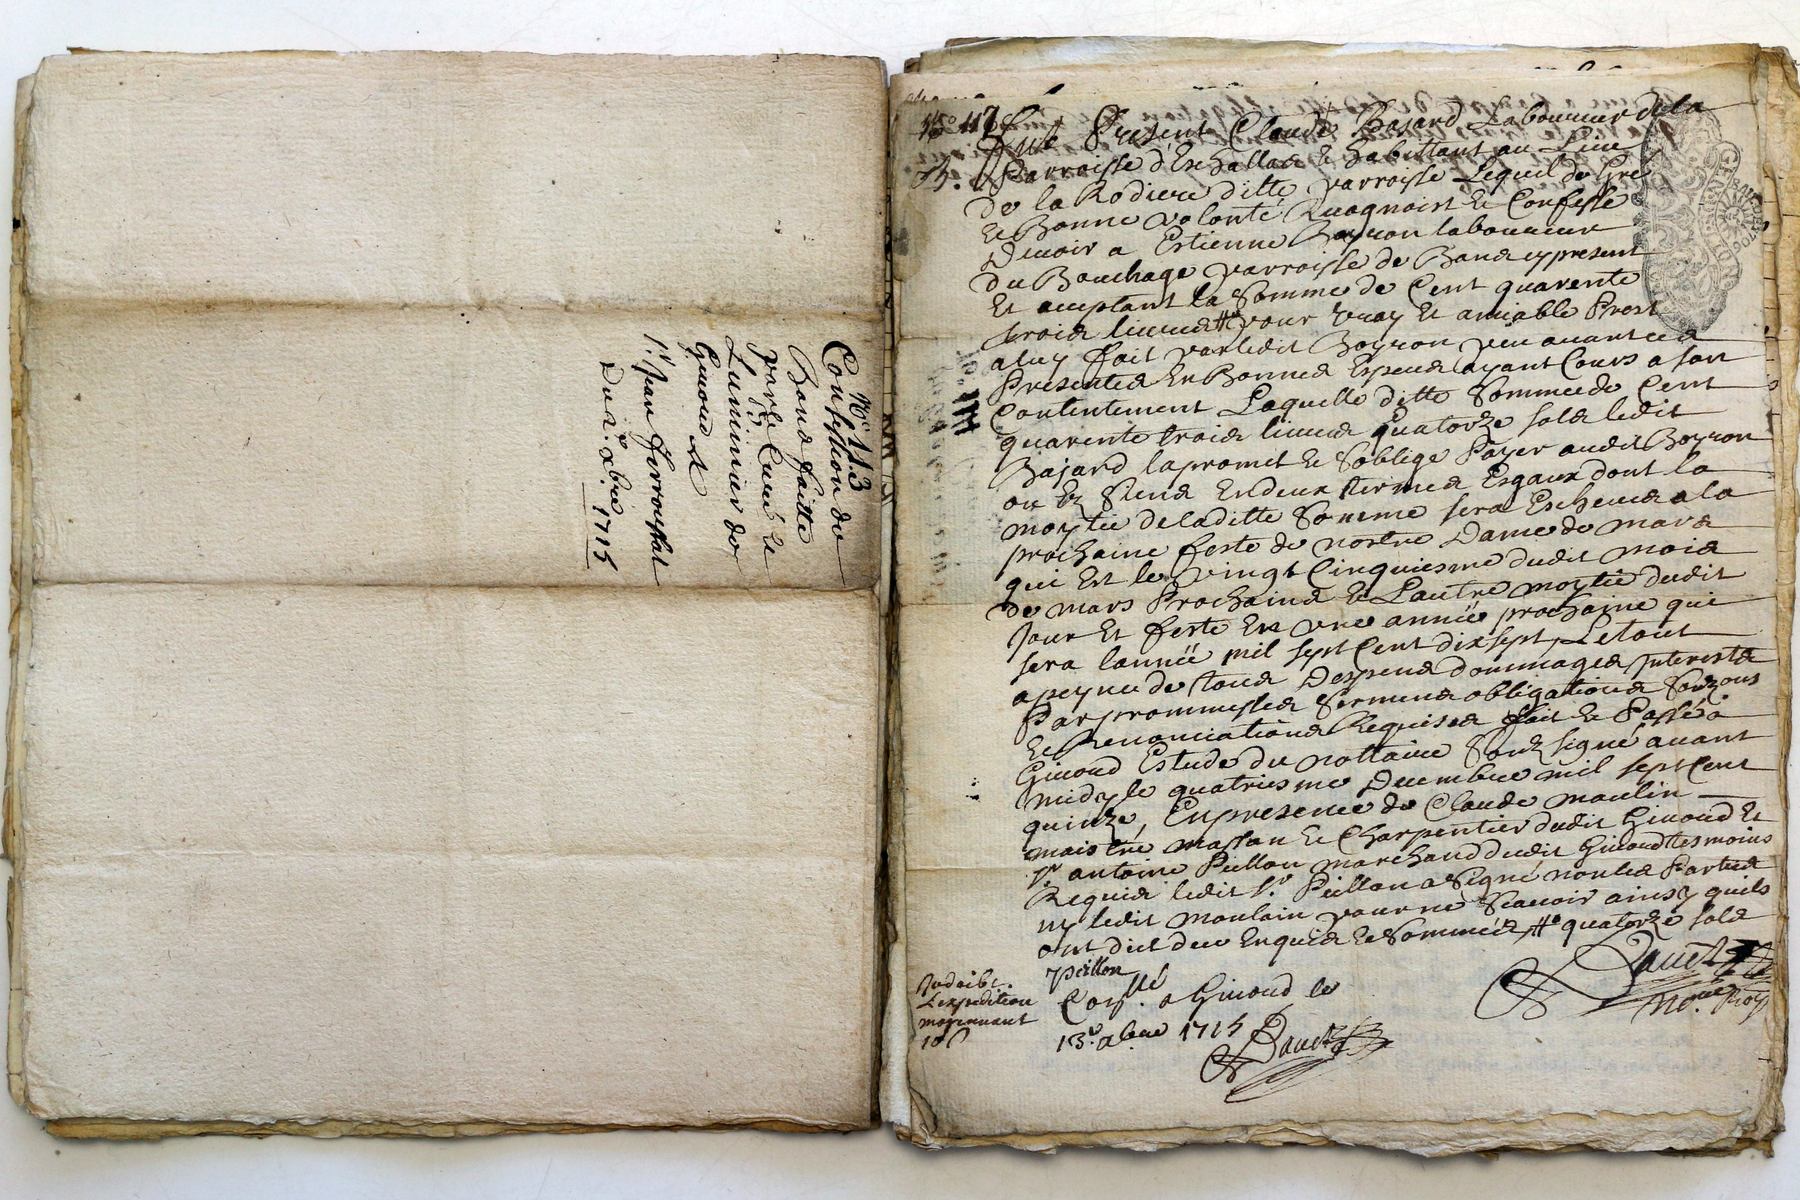 N.o 113
Confession de
Bans faitte
par le Curé et
Luminier de
Giuoud A
S.r Jean
Du 2.e xbre 1715
N.o 117
Fut Present Claude Bajard Laboureur de la
Parroisse d'Eschallas et habittant au Lieu
de la Rodiere ditte parroisse Lequel de Gré
et Bonne volonté Recognoist et Confesse
Deuoir a Estienne Boyron laboureur
du Bouchage parroisse de Bans cy present
Et acceptant la Somme de Cent quarente
trois liures pour vray et amiable Prest
a luy fait par ledit Boyron peu auant ces
Presentes En Bonnes Especes ayant Cours a son
Contentement Laquelle ditte Somme de Cent
quarente trois liures quatorze sols ledit
Bajard la promet et s'oblige Payer audit Boyron
ou Es Siens En deux termes Esgaux dont la
moytié de laditte Somme sera Escheue a la
prochaine feste de nostre Dame de mars
qui Est le vingt Cinquiesme dudit mois
de mars Prochains et L'autre moytié dudit
Jour Et feste En vne année prochaine qui
sera lannéë mil sept Cent dix sept Le tout
a peyne de tous Despens dommages Interests
Par prommesses Sermens obligations
et Renonciations Requises fait et Passé a
Giuoud Estude du nottaire Soubzsigné auant
midy le quatriesme Decembre mil sept Cent
quinze, En presence de Claude moulin
maistre masson et Charpentier dudit Giuoud Et
S.r antoine Peillon marchand dudit Giuoud tesmoins
Requis ledit S.r Peillon a Signé non les Parties
ny ledit moulain pour ne Scauoir ainsy quils
ont dict de ce Enquis et Sommés quatorze sols
Peillon
Jndoibt
L'expedition
moyennant
10 s
Con.llé a Giuoud le
13.e xbre 1715